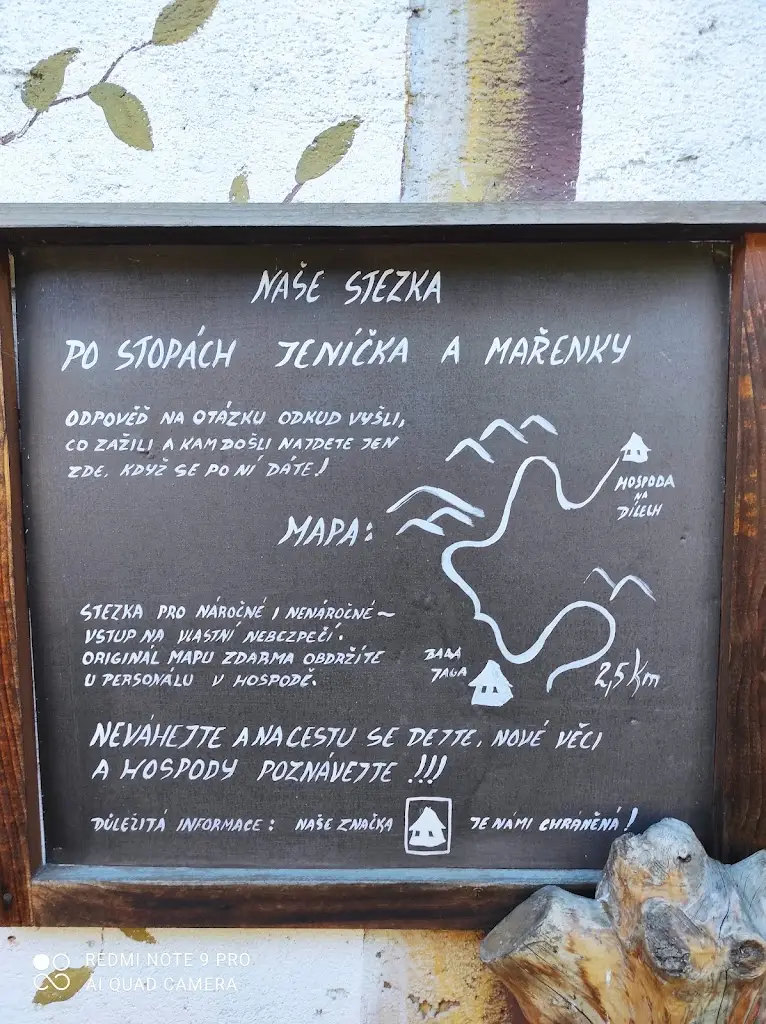 NAŠE STEZKA
PO STOPÁCH JENÍČKA A MAŘENKY
ODPOVĚĎ NA OTÁZKU ODKUD VYŠLI,
CO ZAŽILI A KAM DOŠLI NAJDETE JEN
ZDE, KDYŽ SE PO NÍ DÁTE!
HOSPODA
NA
DÍLECH
MAPA:
STEZKA PRO NÁROČNÉ I NENÁROČNÉ~
VSTUP NA VLASTNÍ NEBEZPEČÍ.
ORIGINÁL MAPU ZDARMA OBDRŽÍTE
U PERSONÁLU V HOSPODĚ.
BABA
JAGA
2,5 km
NEVÁHEJTE A NA CESTU SE DEJTE, NOVÉ VĚCI
A HOSPODY POZNÁVEJTE !!!
DŮLEŽITÁ INFORMACE: NAŠE ZNAČKA JE NÁMI CHRÁNĚNÁ!
REDMI NOTE 9 PRO
AI QUAD CAMERA